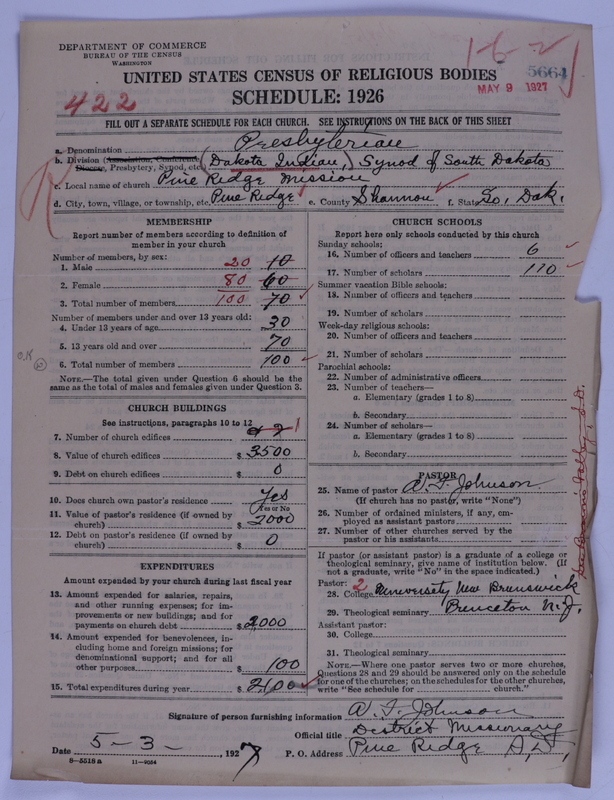 DEPARTMENT OF COMMERCE
BUREAU OF THE CENSUS
WASHINGTON
5664
MAY 9 1927
UNITED STATES CENSUS OF RELIGIOUS BODIES
422
SCHEDULE: 1926
FILL OUT A SEPARATE SCHEDULE FOR EACH CHURCH. SEE INSTRUCTIONS ON THE BACK OF THIS SHEET
a. Denomination Presbyterian
b. Division (Association, Conference, Diocese, Presbytery, Synod, etc.) (Dakota Indian) Synod of South Dakota
c. Local name of church Pine Ridge Mission
d. City, town, village, or township, etc. Pine Ridge e. County Shannon f. State So. Dak.
MEMBERSHIP
Report number of members according to definition of member in your church
Number of members, by sex:
1. Male 20 10
2. Female 80 60
3. Total number of members 100 70
Number of members under and over 13 years old:
4. Under 13 years of age 30
5. 13 years old and over 70
6. Total number of members 100
O.K.
NOTE.—The total given under Question 6 should be the same as the total of males and females given under Question 3.
CHURCH BUILDINGS
See instructions, paragraphs 10 to 12
7. Number of church edifices 2 1
8. Value of church edifices $ 3500
9. Debt on church edifices $ 0
10. Does church own pastor's residence Yes
Yes or No
11. Value of pastor's residence (if owned by church) $ 2000
12. Debt on pastor's residence (if owned by church) $ 0
EXPENDITURES
Amount expended by your church during last fiscal year
13. Amount expended for salaries, repairs, and other running expenses; for improvements or new buildings; and for payments on church debt $ 2,000
14. Amount expended for benevolences, including home and foreign missions; for denominational support; and for all other purposes $ 100
15. Total expenditures during year $ 2100
CHURCH SCHOOLS
Report here only schools conducted by this church
Sunday schools:
16. Number of officers and teachers 6
17. Number of scholars 110
Summer vacation Bible schools:
18. Number of officers and teachers
19. Number of scholars
Week-day religious schools:
20. Number of officers and teachers
21. Number of scholars
Parochial schools:
22. Number of administrative officers
23. Number of teachers—
a. Elementary (grades 1 to 8)
b. Secondary
24. Number of scholars—
a. Elementary (grades 1 to 8)
b. Secondary
PASTOR
25. Name of pastor A. F. Johnson
(If church has no pastor, write "None")
26. Number of ordained ministers, if any, employed as assistant pastors
27. Number of other churches served by the pastor or his assistants
If pastor (or assistant pastor) is a graduate of a college or theological seminary, give name of institution below. (If not a graduate, write "No" in the space indicated.)
Pastor: 2
28. College University New Brunswick
29. Theological seminary Princeton N.J.
Assistant pastor:
30. College
31. Theological seminary
NOTE.—Where one pastor serves two or more churches, Questions 28 and 29 should be answered only on the schedule for one of the churches; on the schedules for the other churches, write "See schedule for church."
Signature of person furnishing information A. F. Johnson
Official title District Missionary
Date 5-3-, 1927 P. O. Address Pine Ridge S.D.,
8—5518 a 11—9054